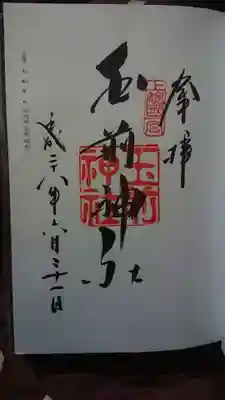 奉拝
玉前神社
玉前
神社
平成二八年六月二十一日